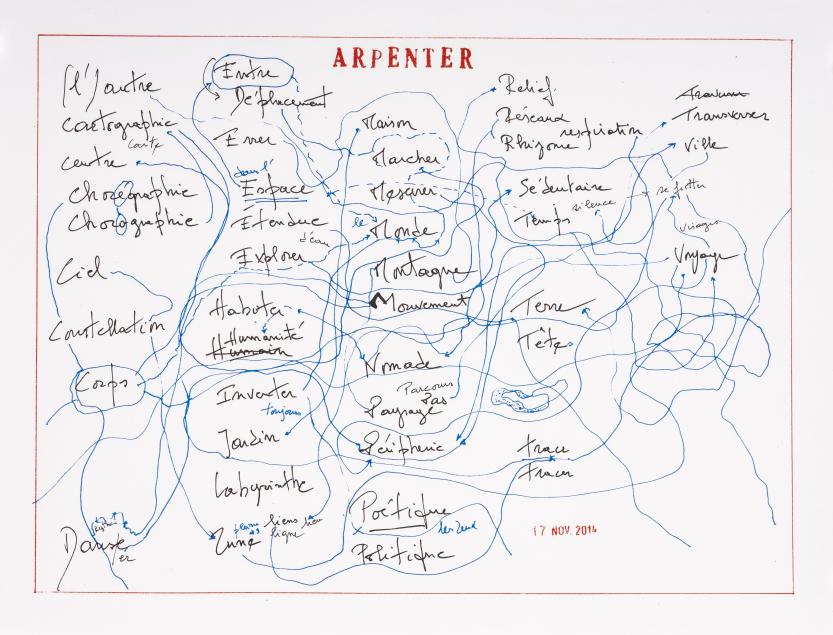 ARPENTER
(l')autre
cartographie
carte
centre
Choréographie
Chorographie
Ciel
Constellation
Corps
Danse
er
Entre
Déplacement
Errer
dans l'
Espace
Etendue
d'eau
Explorer
Habiter
Humanité
Humain
Inventer
toujours
Jardin
Labyrinthe
liens lieu
ligne
Maison
Marcher
Mesurer
le Monde
Montagne
Mouvement
Nomade
Parcours
Pas
Paysage
Périphérie
Poëtique
Politique
Relief
Réseaux
Rhizome respiration
Sédentaire
silence
Temps
Terre
Tête
trace
tracer
17 NOV. 2014
Travaux
Transverser
Ville
se frotter
visages
Voyage